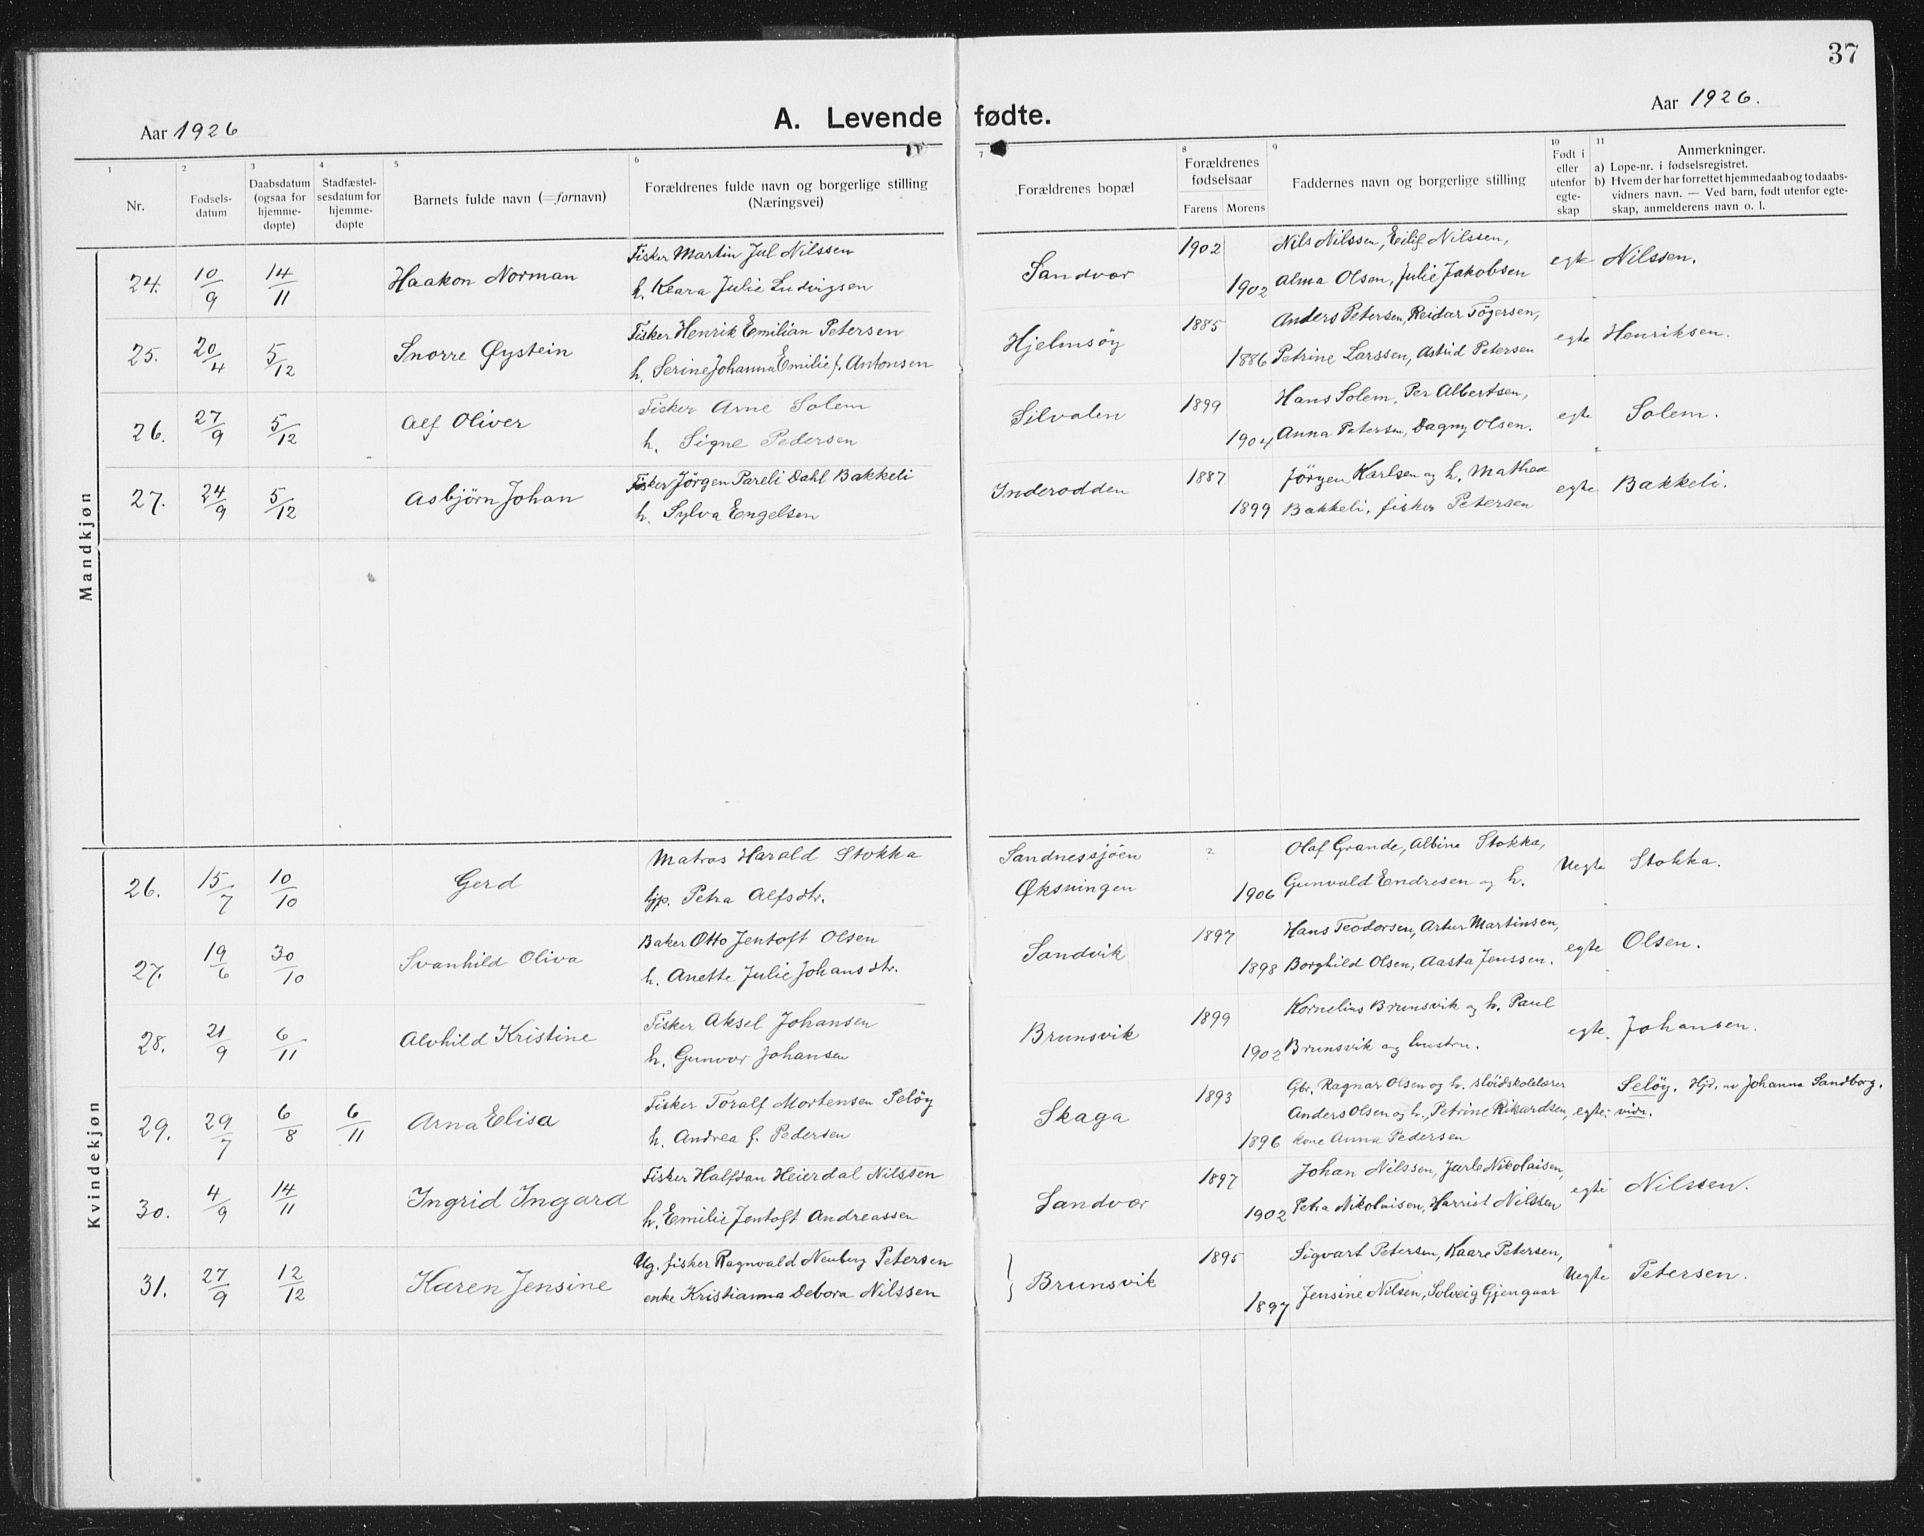 37
Aar 1926
A. Levende fødte.
Aar 1926.
1 2 3 4 5 6 7 8 9 10 11
Nr.
Fødsels-
datum
Daabsdatum
(ogsaa for
hjemme-
døpte)
Stadfæstel-
sesdatum for
hjemme-
døpte
Barnets fulde navn (=fornavn)
Forældrenes fulde navn og borgerlige stilling
(Næringsvei)
Forældrenes bopæl
Forældrenes
fødselsaar
Farens Morens
Faddernes navn og borgerlige stilling
Født i
eller
utenfor
egte-
skap
Anmerkninger.
a) Løpe-nr. i fødselsregistret.
b) Hvem der har forrettet hjemmedaab og to daabs-
vidners navn. — Ved barn, født utenfor egte-
skap, anmelderens navn o. l.
Mandkjøn
24. 10/9 14/11 Haakon Norman
Fisker Martin Jul Nilssen
h. Klara Julie Ludvigsen
Sandvær 1902 1902
Nils Nilssen, Eilif Nilssen,
Alma Olsen, Julie Jakobsen
egte Nilssen.
25. 20/4 5/12 Snorre Øystein
Fisker Henrik Emilian Petersen
h. Serine Johanna Emilie f. Antonsen
Hjelmsöy 1885 1886
Anders Petersen, Reidar Tögersen,
Petrine Larssen, Astrid Petersen
egte Henriksen.
26. 27/9 5/12 Alf Oliver
Fisker Arne Solem
h. Signe Pedersen
Silvalen 1899 1904
Hans Solem, Per Albertsen,
Anna Petersen, Dagny Olsen.
egte Solem.
27. 24/9 5/12 Asbjörn Johan
Fisker Jörgen Pareli Dahl Bakkeli
h. Sylva Engelsen
Inderodden 1887 1899
Jörgen Karlsen og h. Mathea
Bakkeli, fisker Petersen
egte Bakkeli.
Kvindekjøn
26. 15/7 10/10 Gerd
Matros Harald Stokka
tjp. Petra Alfsdtr.
Sandnessjöen
Øksningen
? 1906
Olaf Grande, Albina Stokka,
Gunvald Endresen og h.
Uegte Stokka.
27. 19/6 30/10 Svanhild Oliva
Baker Otto Jentoft Olsen
h. Anette Julie Johansdtr.
Sandvik 1897 1898
Hans Teodorsen, Artur Martinsen,
Borghild Olsen, Aasta Jenssen.
egte Olsen.
28. 21/9 6/11 Alvhild Kristine
Fisker Aksel Johansen
h. Gunvor Johansen
Brunsvik 1899 1902
Kornelius Brunsvik og h. Paul
Brunsvik og hustru.
egte. Johansen.
29. 29/7 6/8 6/11 Arna Elisa
Fisker Toralf Mortensen Selöy
h. Andrea f. Pedersen
Skaga 1893 1896
Gbr. Ragnar Olsen og h. slöidskolelærer
Anders Olsen og h., Petrine Rikardsen,
kone Anna Pedersen
egte. Selöy. Hjd. av Johanna Sandborg.
vidr.
30. 4/9 14/11 Ingrid Ingard
Fisker Halfdan Heierdal Nilssen
h. Emilie Jentoft Andreassen
Sandvær 1897 1902
Johan Nilssen, Jarle Nikolaisen,
Petra Nikolaisen, Harriet Nilssen
egte Nilssen.
31. 27/9 12/12 Karen Jensine
Ug. fisker Ragnvald Neuberg Petersen
enke Kristianna Debora Nilssen
Brunsvik 1895 1897
Sigvart Petersen, Kaare Petersen,
Jensine Nilsen, Solveig Gjengaar
Uegte Petersen.